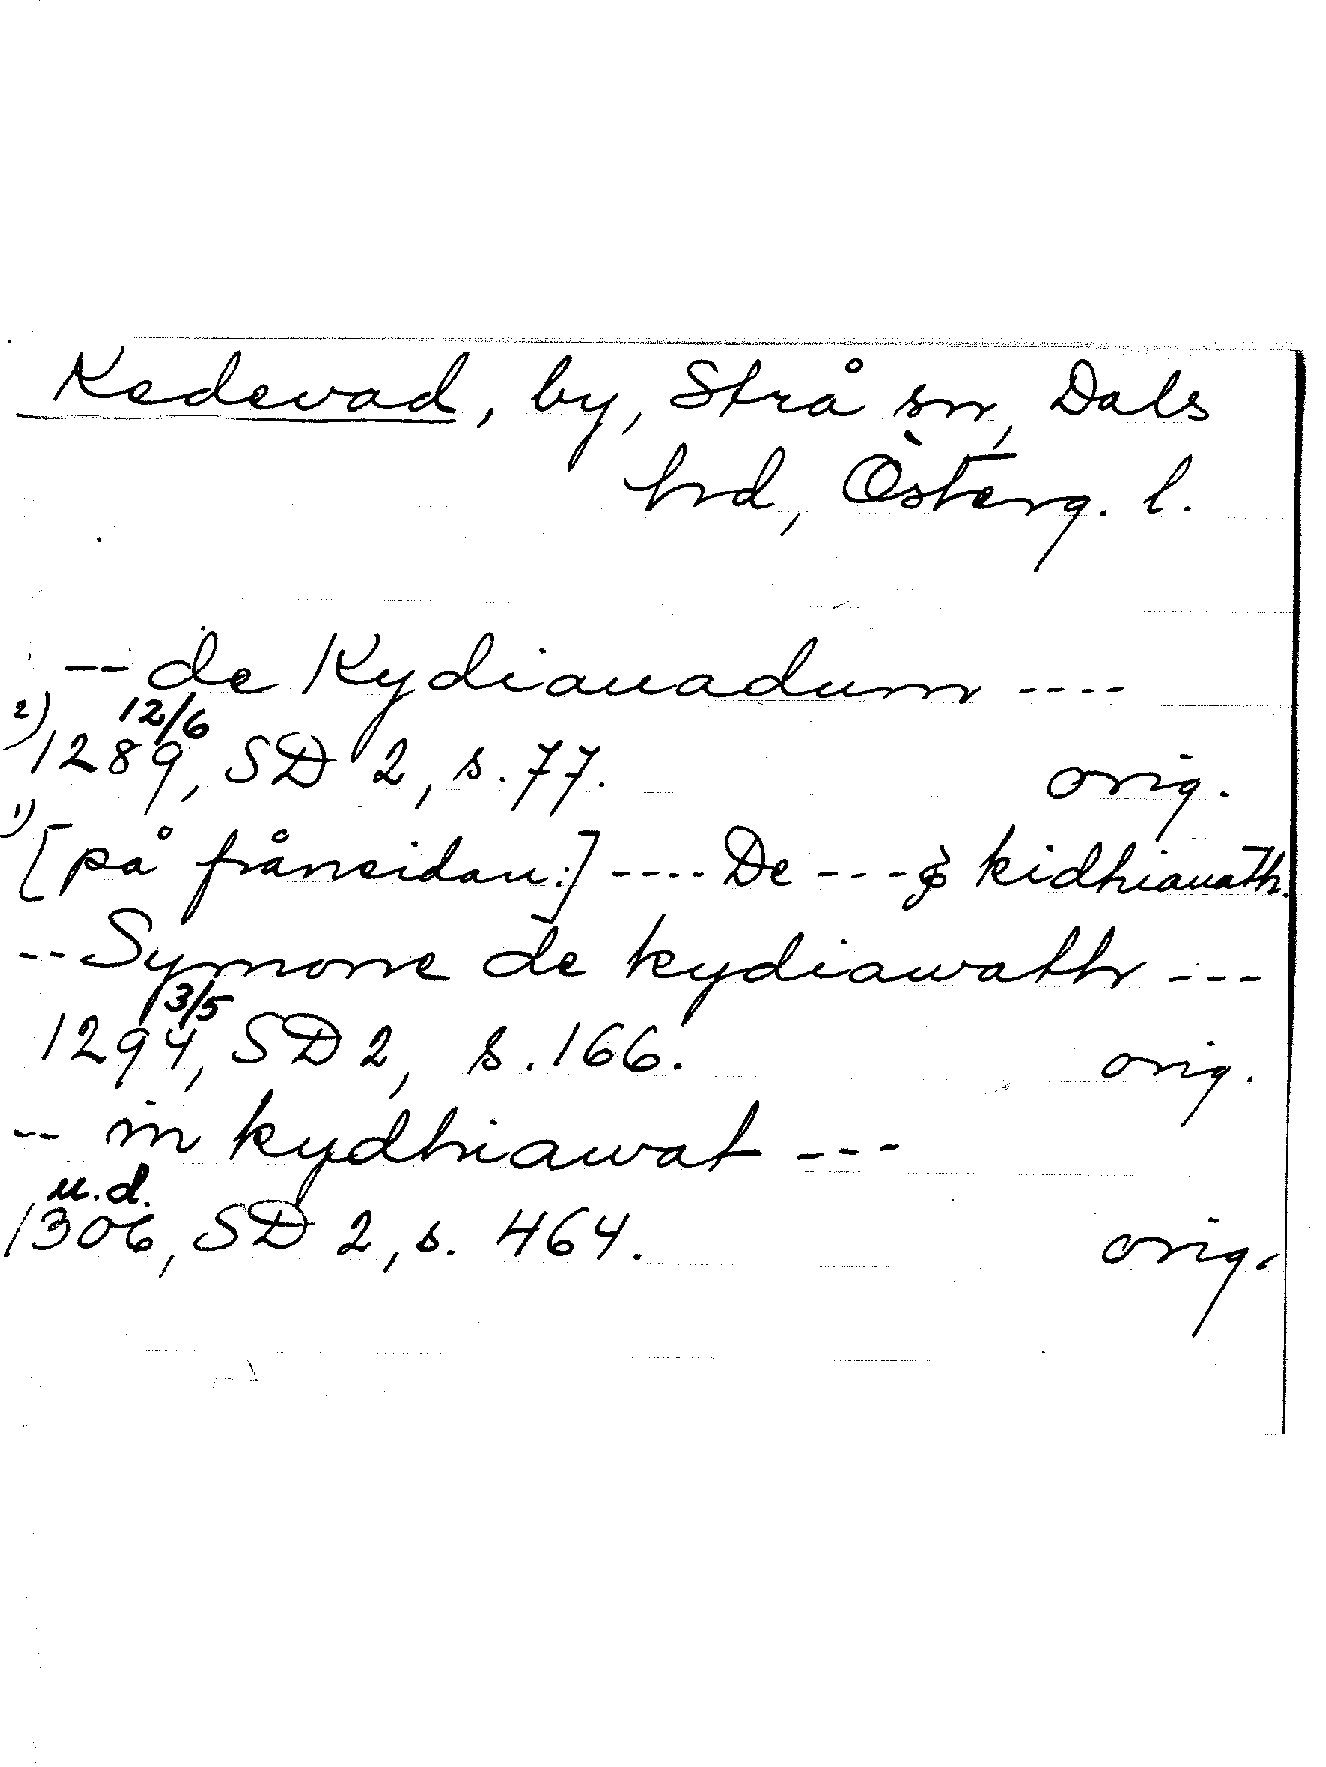 Kedevad, by, Strå sn, Dals
hrd, Österg. l.
-- de Kydiauadum ----
2) 12/6
1289, SD 2, s. 77. orig.
1)
[på frånsidan:] ---- De ---- & kidhiauath.
-- Symone de kydiawath ---
3/5
1294, SD 2, s. 166. orig.
-- in kydhiawat ---
u.d.
1306, SD 2, s. 464. orig.